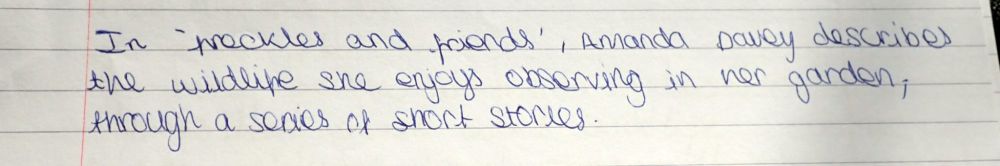 In 'freckles and friends', Amanda Davey describes
the wildlife she enjoys observing in her garden,
through a series of short stories.